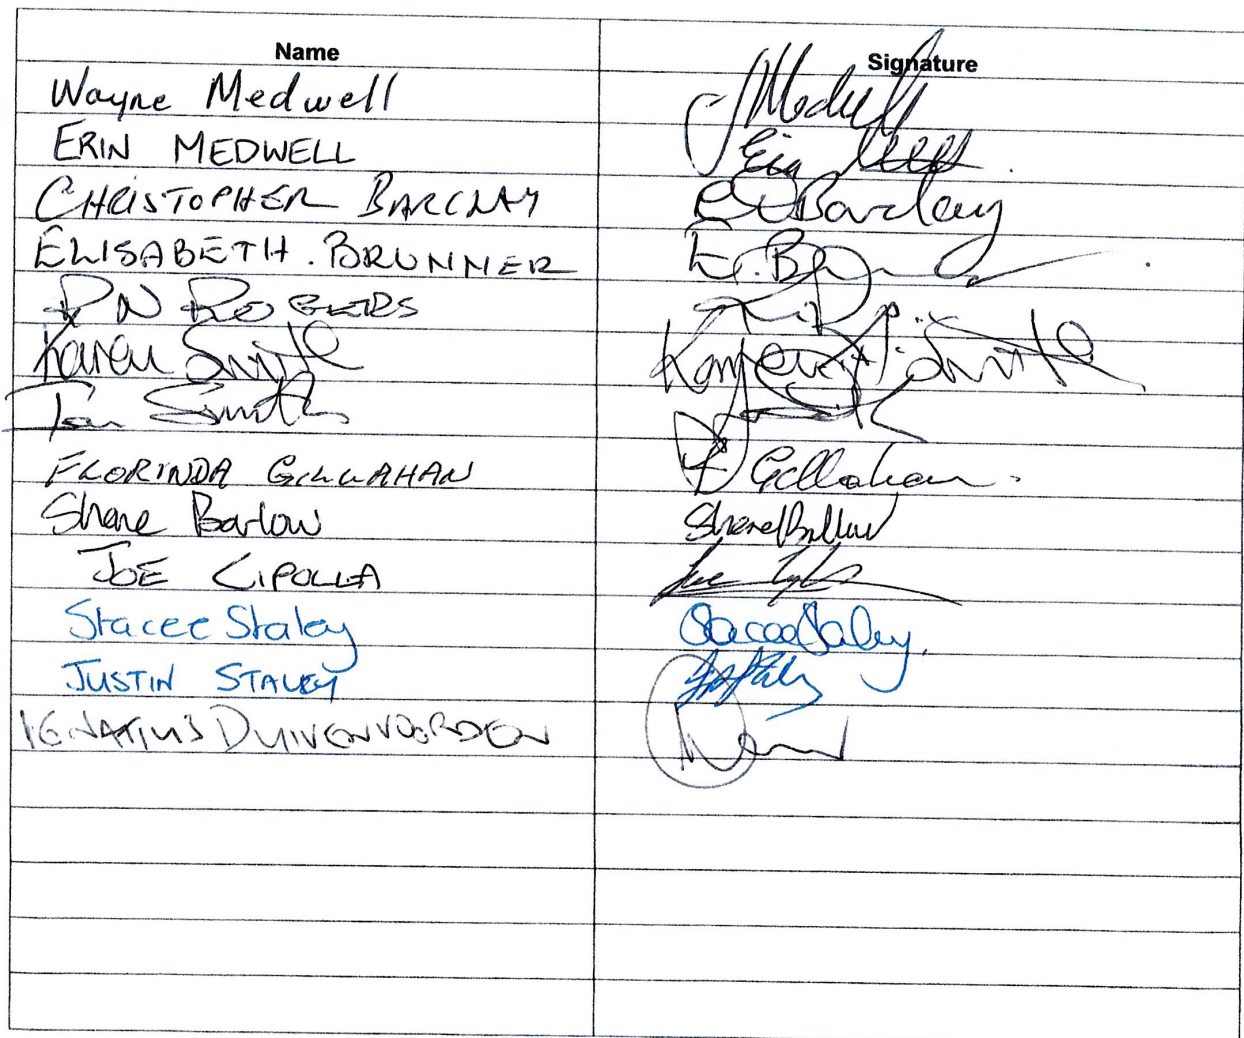 Name Signature
Wayne Medwell
ERIN MEDWELL Erin
CHRISTOPHER BARCLAY Barclay
ELISABETH . BRUNNER E. B
RN ROGERS
Karen Smith Smith
Smith
FLORINDA GILLAHAN F Gillahan .
Shane Barlow Shane Barlow
JOE CIPOLLA Joe
Stacee Staley Stacee Staley
JUSTIN STALEY
IGNATIUS DUIVENVOORDEN